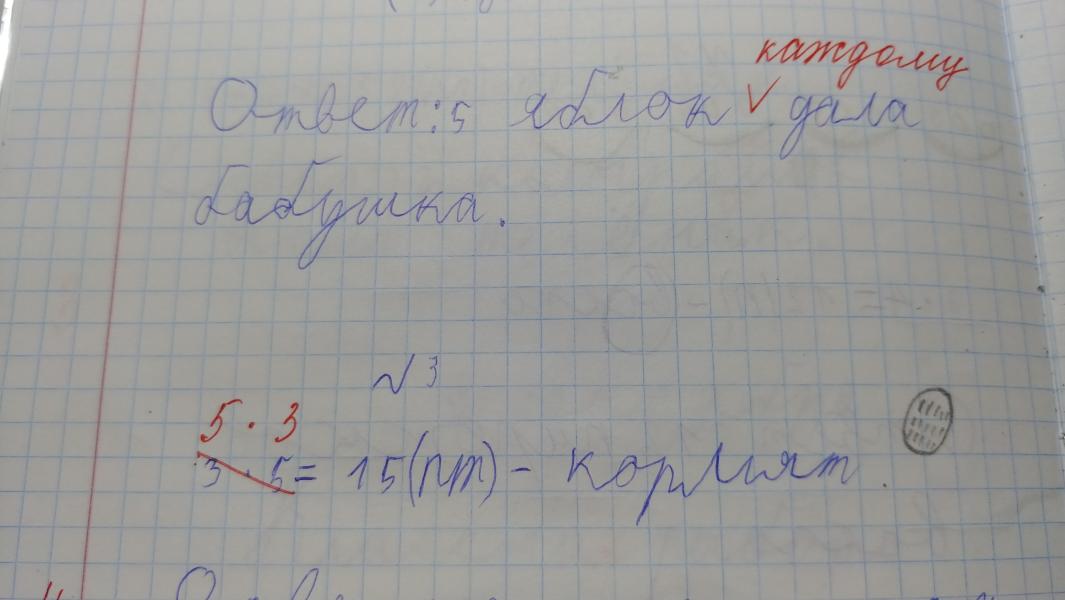 каждому
Ответ: 5 яблок V дала
бабушка.
№3
5 · 3
3 · 5 = 15 (пт) - кормят.